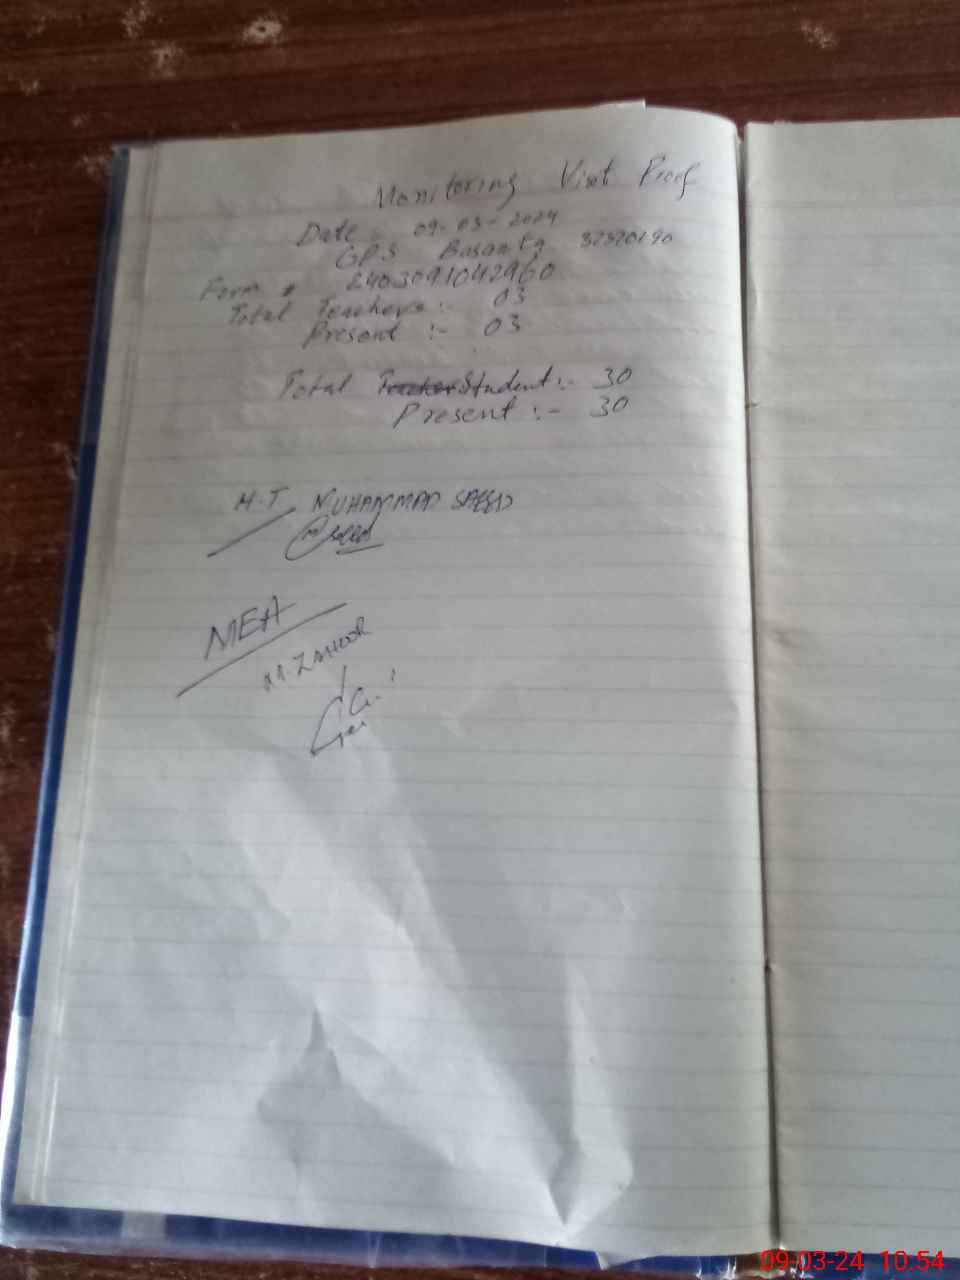 Monitoring Visit Proof
Date : 09-03-2024
GPS Basanta
Form # 2403091042960
Total Teachers :- 03
Present :- 03
Total Student :- 30
Present :- 30
H.T MUHAMMAD SAEED
MEA
M. ZAHOOR
09-03-24 10.54